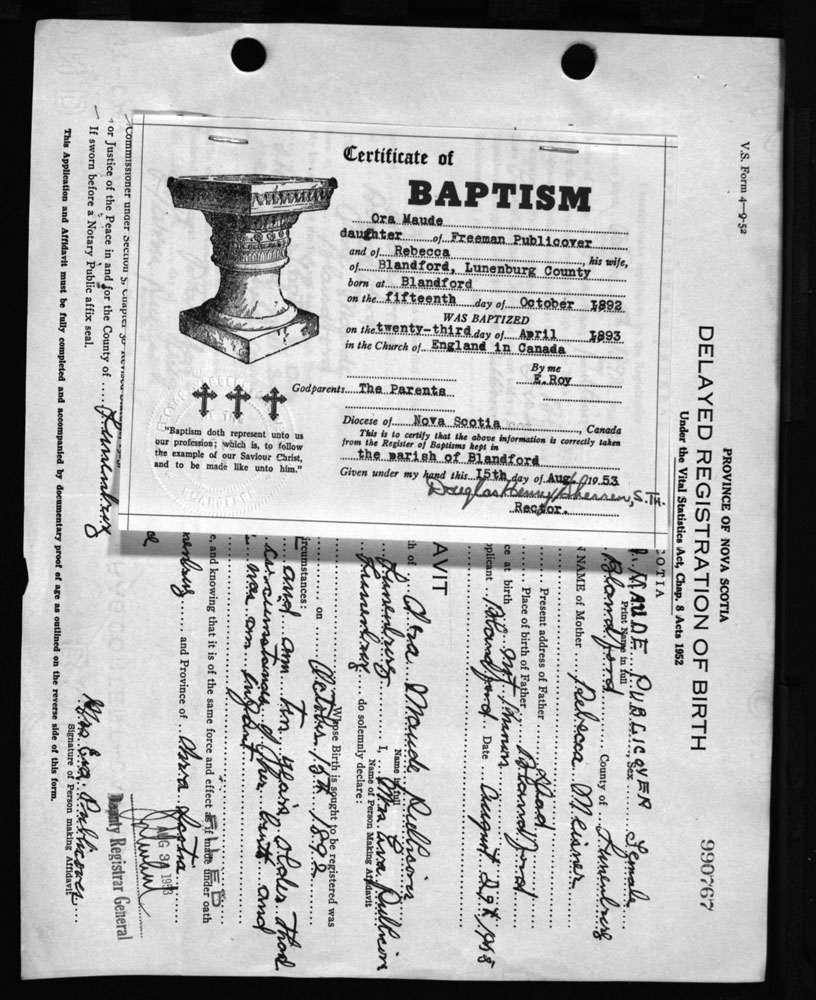 Certificate of
BAPTISM
Ora Maude
daughter of Freeman Publicover
and of Rebecca, his wife,
of Blandford, Lunenburg County
born at Blandford
on the fifteenth day of October 1892
WAS BAPTIZED
on the twenty-third day of April 1893
in the Church of England in Canada
By me
E. Roy
Godparents The Parents
Diocese of Nova Scotia, Canada
This is to certify that the above information is correctly taken
from the Register of Baptisms kept in
the parish of Blandford
Given under my hand this 15th day of Aug. 1953
Douglas Henry S. Th.
Rector.
"Baptism doth represent unto us
our profession; which is, to follow
the example of our Saviour Christ,
and to be made like unto him."
V.S. Form 4—9-52
990767
PROVINCE OF NOVA SCOTIA
DELAYED REGISTRATION OF BIRTH
Under the Vital Statistics Act, Chap. 8 Acts 1952
OTIA
MAUDE PUBLICOVER Sex Female
Print Name in full
Blandford County of Lunenburg
NAME of Mother Rebecca Meisner
Present address of Father Dead
Place of birth of Father Blandford
ce at birth
pplicant Blandford Date August 29th
AVIT
th of Ora Maude
Name in full
Lunenburg I, Mrs Eva
Name of Person Making Affidavit
Lunenburg do solemnly declare:
Whose Birth is sought to be registered was
on October 15th 1892
ircumstances:
and am ten years older than
circumstances of her birth and
was an infant
e, and knowing that it is of the same force and effect as if made under oath
FILED
enburg and Province of Nova Scotia
AUG 31 1953
Deputy Registrar General
Mrs Eva Publicover
Signature of Person making Affidavit
Commissioner under Section 5, Chapter
or Justice of the Peace in and for the County of Lunenburg
If sworn before a Notary Public affix seal.
This Application and Affidavit must be fully completed and accompanied by documentary proof of age as outlined on the reverse side of this form.